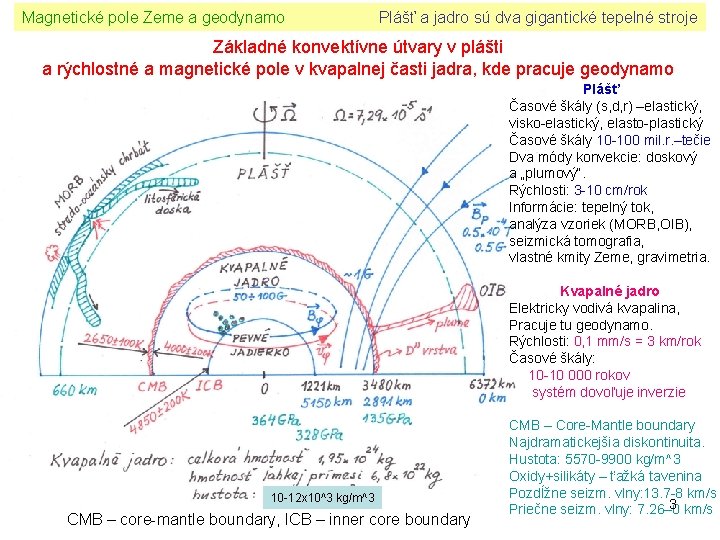 Magnetické pole Zeme a geodynamo
Plášť a jadro sú dva gigantické tepelné stroje
Základné konvektívne útvary v plášti
a rýchlostné a magnetické pole v kvapalnej časti jadra, kde pracuje geodynamo
Plášť
Časové škály (s,d,r) –elastický,
visko-elastický, elasto-plastický
Časové škály 10-100 mil.r.–tečie
Dva módy konvekcie: doskový
a „plumový“.
Rýchlosti: 3-10 cm/rok
Informácie: tepelný tok,
analýza vzoriek (MORB,OIB),
seizmická tomografia,
vlastné kmity Zeme, gravimetria.
Kvapalné jadro
Elektricky vodivá kvapalina,
Pracuje tu geodynamo.
Rýchlosti: 0,1 mm/s = 3 km/rok
Časové škály:
10-10 000 rokov
systém dovoľuje inverzie
CMB – Core-Mantle boundary
Najdramatickejšia diskontinuita.
Hustota: 5570-9900 kg/m^3
Oxidy+silikáty – ťažká tavenina
Pozdĺžne seizm. vlny:13.7-8 km/s
Priečne seizm. vlny: 7.26–0 km/s
3
Ω⃗ Ω = 7,29·10⁻⁵ s⁻¹
PLÁŠŤ
MORB
stredo-oceánsky chrbát
litosférická
doska
B⃗p
0.5·10⁻⁴T
0.5G
~1G
KVAPALNÉ
JADRO
50÷100G
B⃗φ
PEVNÉ
JADIERKO
v⃗φ
OIB
plume
D" vrstva
2650±100K
4000±200K
4850±200K
660 km CMB ICB 0 1221km 3480km 6372km
5150km 2891km 0km
364GPa 135GPa
328GPa
Kvapalné jadro: celková hmotnosť 1,95·10²⁴kg
hmotnosť ľahkej prímesi 6,8·10²²kg
hustota: 10-12x10^3 kg/m^3
CMB – core-mantle boundary, ICB – inner core boundary